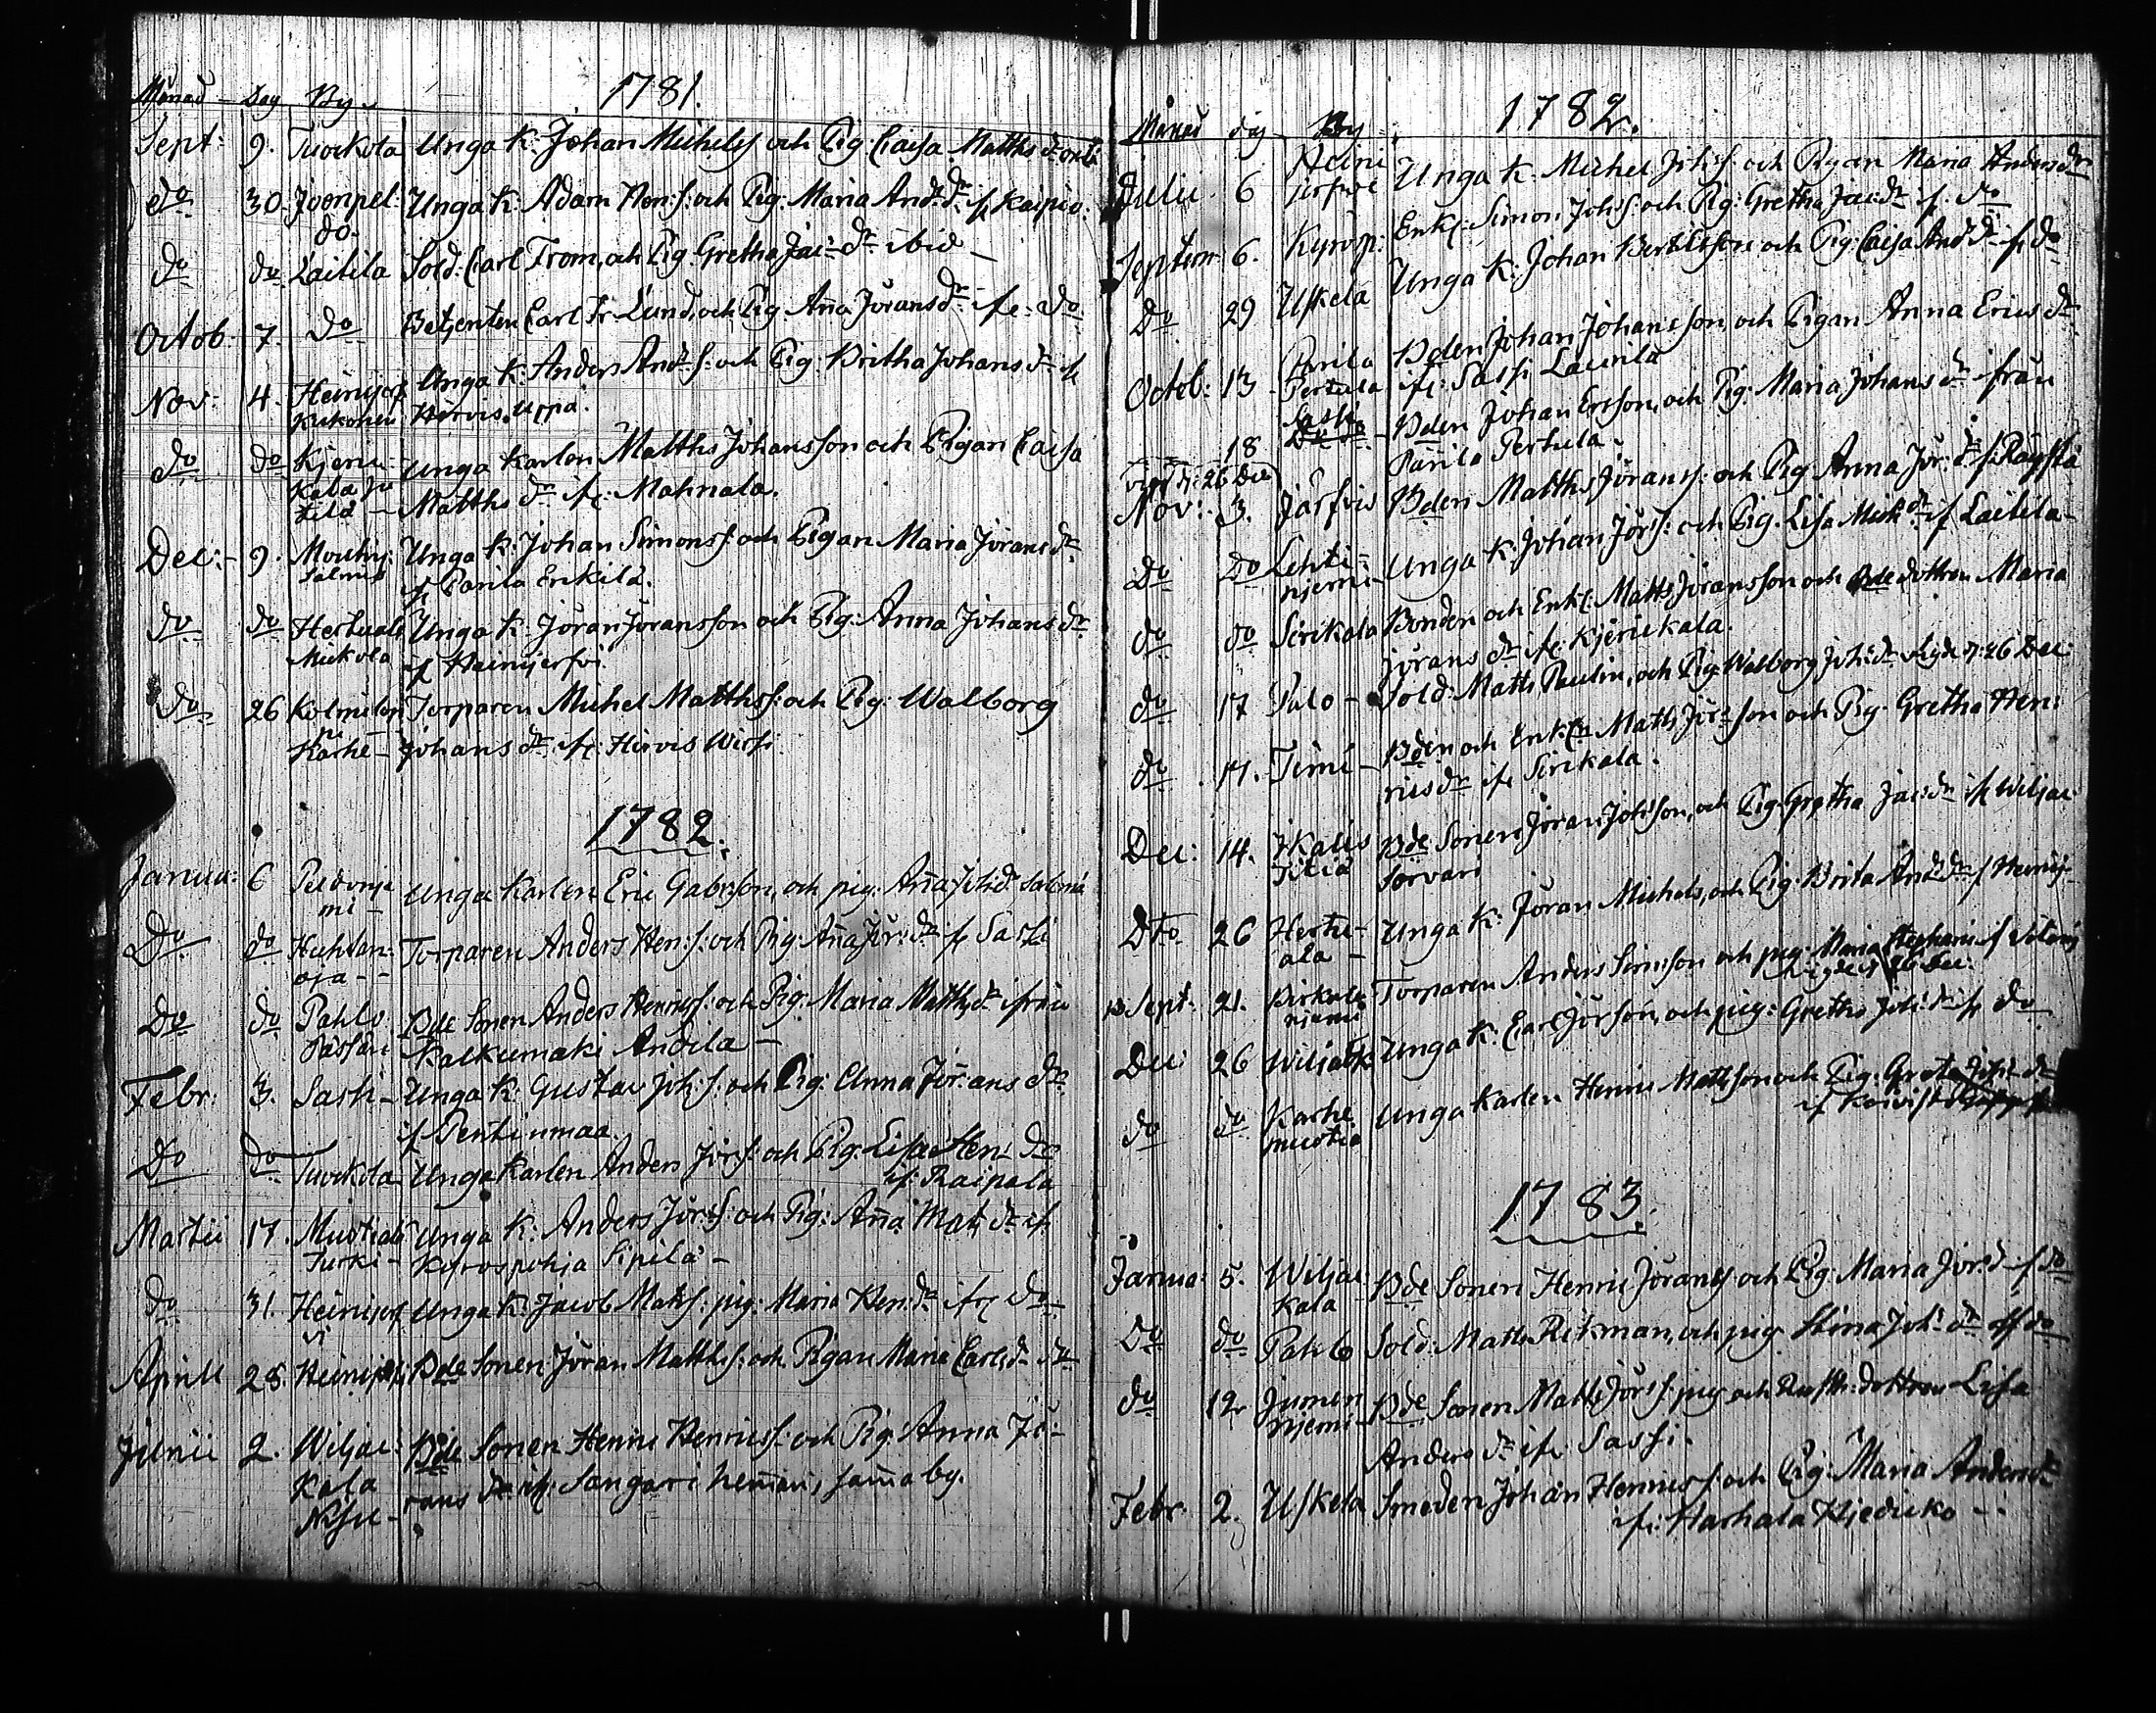 1781.
Månad Dag By
Sept: 9. Tuockola Unga K: Johan Michelss och Pig: Caisa Matths dr
do 30. Joenpel: Unga K: Adam Hen:s: och Pig: Maria And: dr if Kaipio:
do.
do do Laitila Sold: Carl From, och Pig. Gretha Jac: dr ibid
Octob: 7. do Betjenten Carl Fr. Lund, och Pig. Aña Jörans dr if: do
Nov: 4. Heinijerf Unga K: Anders And:s: och Pig: Britha Johans dr if
Kukonen Hirvis. Uppa.
do do Kjeric- Unga Karlen Matths Johansson och Pigan Caisa
kala
tila Matths dr if: Mahnala.
Dec: 9. Mouhi: Unga K: Johan Simons s: och Pigan Maria Jörans dr
salmis if Parila Erikilä.
do do Hertuala Unga K. Jöran Jöransson och Pig: Anna Johans dr
Mickola if Heinijerfvi
do 26 Kolmilop Torparen Michel Matthss: och Pig: Walborg
pi
Karhe Johans dr if: Hirvis Wirsi.
1782.
Janua: 6 Peldonje Unga Karlen Eric Gabr:son, och pig: Aña Joh: dr Salmi
mi
Do do Huhtan: Torparen Anders Hen:s: och Pig: Aña Jör: dr if Sassi
oja
Do do Pahlo Bde Sonen Anders Henricss: och Pig: Maria Matths dr ifrån
Passari Kalkumaki Andila
Febr: 3. Saski Unga K: Gustav Joh:s: och Pig: Anna Jörans dr
if Pentinmaa.
Do Do Tuockola Unga Karlen Anders Jörs: och Pig: Lisa Hen: dr
if: Raipala
Martii 17. Muotiala Unga K: Anders Jör:s: och Pig: Aña Mats dr if
Turki Kyröspohja Sipilä
do 31. Heinijerf Unga K: Jacob Mats s: pig: Maria Hen: dr ifr do
vi
Aprill 28. Heinijerf: Bde Sonen Jöran Matths s: och Pigan Maria Carls dr do
Junii 2. Wiljac: Bde Sonen Henric Henricss: och Pig: Anna Jö-
kala rans dr if: Sangari heman, sama by.
Nisu
1782.
Månad dag By
Julii 6 Heini Unga K: Michel Joh:s: och Pigan Maria Anders dr
jerfwi
Septem 6. Kyrösp: Enkl: Simon Joh:s: och Pig: Gretha Jac: dr if: do
Do 29 Uskela Unga K: Johan Bertilsson och Pig: Caisa And: dr if do
Octob: 13 Parila Bden Johan Johansson, och Pigan Anna Erics dr
Pertula if: Sassi Laurila
Saski
18 Do do Bden Johan Ersson, och Pig: Maria Johans dr ifrån
Parila Pertula.
vigd d: 26 Dec
Nov: 3. Järfvis Bden Matths Jörans s: och Pig Anna Jör: dr if: Röystä
Do Do Lehti- Unga K: Johan Jörs s: och Pig: Lisa Mich dr if Laitila
njemi
do do Sirikala Bonden och Enkl: Matts Jöransson och Bde dottren Maria
Jörans dr if: Kjerickala.
do 17 Palo Sold: Matts Paulin, och Pig: Walborg Joh: dr vigde d: 26 Dec:
do 17. Timi Bden och Enkln Matts Jör:son och Pig: Gretha Hen:
rics dr if: Sirikala.
Dec: 14. Ikalis Bde Sonen Jöran Joh:son, och Pig: Gretha Jac: dr if Wiljac:
Sorvari
Dto 26 Hertu- Unga K: Jöran Michels, och Pig: Brita And: dr if Heinij
ala
Sept: 21. Pirkula Torparen Anders Sim:son och pig: Maria Stephani if
njemi vigde d 26 Dec:
Dec: 26 Wiljack Unga K: Carl Jörson, och pig: Gretha Joh: dr if do
do do Karhe Unga Karlen Henric Mattsson och Pig: Greta Joh: dr
muotia if Koivisto
1783.
Janua: 5. Wiljac Bde Sonen Henric Jöranss och Pig: Maria Jör: d if do
kala
Do do Pahlo Sold: Matts Rikman, och pig Stina Joh: dr if do
do 12 Jumen Bde Sonen Matts Jörs s: pig och Rusth: dottren Lisa
njemi
Anders dr if: Sassi.
Febr 2. Uskela Smeden Johan Henrics s: och Pig: Maria Anders dr
if: Harhala Hjedicko